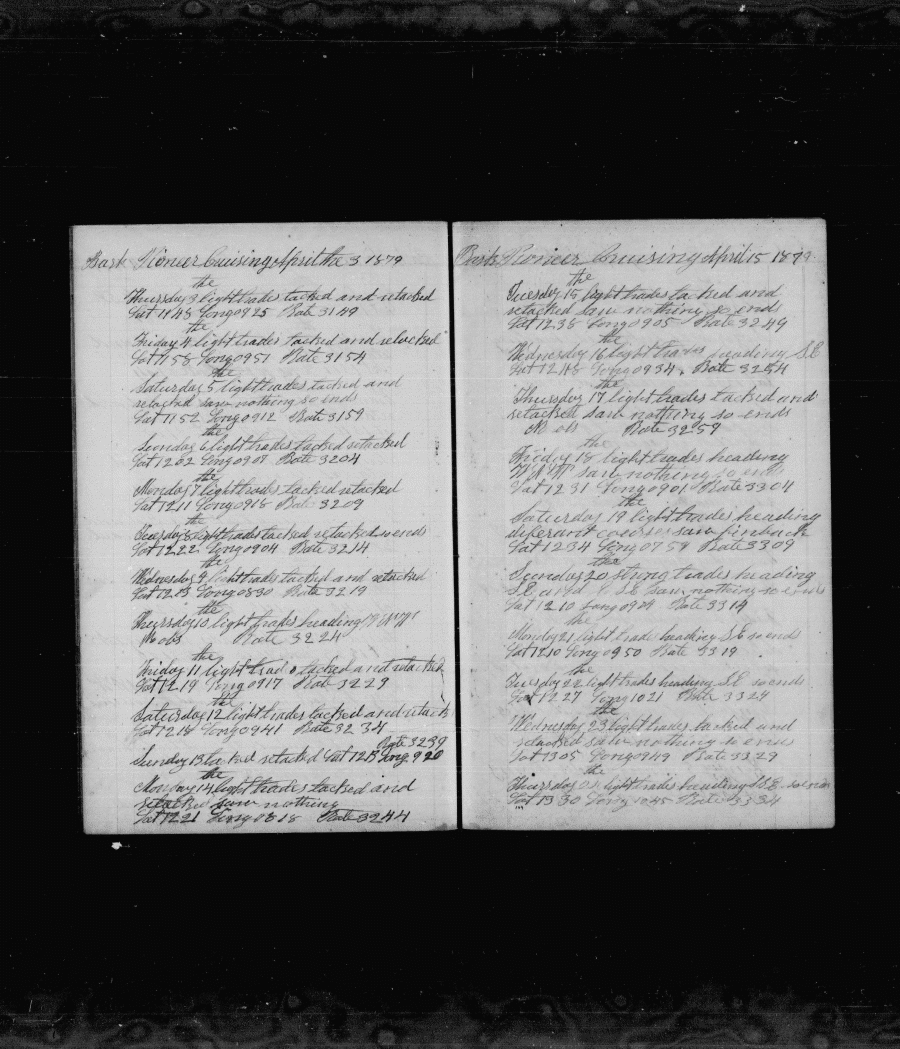 Bark Pioneer Cruising April the 3 1879
the
Thursday 3 light trades tacked and retacked
Lat 11 48 Long 09 25 Rate 31 49
the
Friday 4 light trades tacked and retacked
Lat 11 58 Long 09 51 Rate 31 54
the
Saturday 5 light trades tacked and
retacked saw nothing so ends
Lat 11 52 Long 09 12 Rate 31 59
the
Sunday 6 light trades tacked retacked
Lat 12 02 Long 09 09 Rate 32 04
the
Monday 7 light trades tacked retacked
Lat 12 11 Long 09 18 Rate 32 09
the
Tuesday 8 light trades tacked retacked so ends
Lat 12 22 Long 09 04 Rate 32 14
the
Wednesday 9 light trades tacked and retacked
Lat 12 13 Long 08 30 Rate 32 19
the
Thursday 10 light trades heading
No obs Rate 32 24
the
Friday 11 light trades tacked and retacked
Lat 12 19 Long 09 17 Rate 32 29
the
Saturday 12 light trades tacked and retack
Lat 12 18 Long 09 41 Rate 32 34
Rate 32 39
Sunday 13 tacked retacked Lat 12 13 Long 9 20
the
Monday 14 light trades tacked and
retacked saw nothing
Lat 12 21 Long 08 18 Rate 32 44
Bark Pioneer Cruising April 15 1879
the
Tuesday 15 light trades tacked and
retacked saw nothing so ends
Lat 12 38 Long 09 05 Rate 32 49
the
Wednesday 16 light trades heading S.E
Lat 12 48 Long 09 34 Rate 32 54
the
Thursday 17 light trades tacked and
retacked saw nothing so ends
No obs Rate 32 59
the
Friday 18 light trades heading
saw nothing so ends
Lat 12 31 Long 09 01 Rate 33 04
the
Saturday 19 light trades heading
diferant courses saw finback
Lat 12 34 Long 07 59 Rate 33 09
the
Sunday 20 strong trades heading
S.E and S.E saw nothing so ends
Lat 12 10 Long 09 04 Rate 33 14
the
Monday 21 light trade heading S.E so ends
Lat 12 10 Long 09 50 Rate 33 19
the
Tuesday 22 light trades heading S.E so ends
Lat 12 27 Long 10 21 Rate 33 24
the
Wednesday 23 light trades tacked and
retacked saw nothing so ends
Lat 13 05 Long 09 49 Rate 33 29
the
Thursday light trades heading S.E. so ends
Lat 13 30 Long 10 45 Rate 33 34